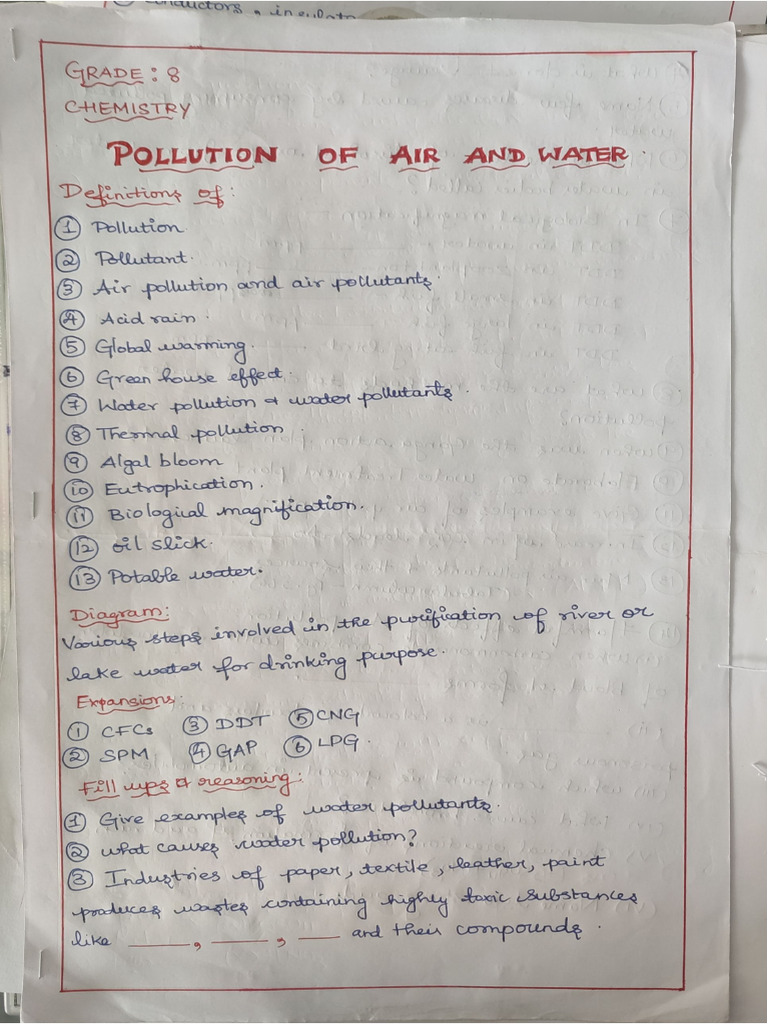 conductors, insulato
GRADE: 8
CHEMISTRY
POLLUTION OF AIR AND WATER.
Definitions of:
① Pollution
② Pollutant.
③ Air pollution and air pollutants.
④ Acid rain.
⑤ Global warming.
⑥ Green house effect.
⑦ Water pollution & water pollutants.
⑧ Thermal pollution
⑨ Algal bloom
⑩ Eutrophication.
⑪ Biological magnification.
⑫ oil slick.
⑬ Potable water.
Diagram:
Various steps involved in the purification of river or
lake water for drinking purpose.
Expansions:
① CFCs ③ DDT ⑤ CNG
② SPM ④ GAP ⑥ LPG.
Fill ups & reasoning:
① Give examples of water pollutants.
② what causes water pollution?
③ Industries of paper, textile, leather, paint
produces wastes containing highly toxic substances
like ____, ____, ___ and their compounds.